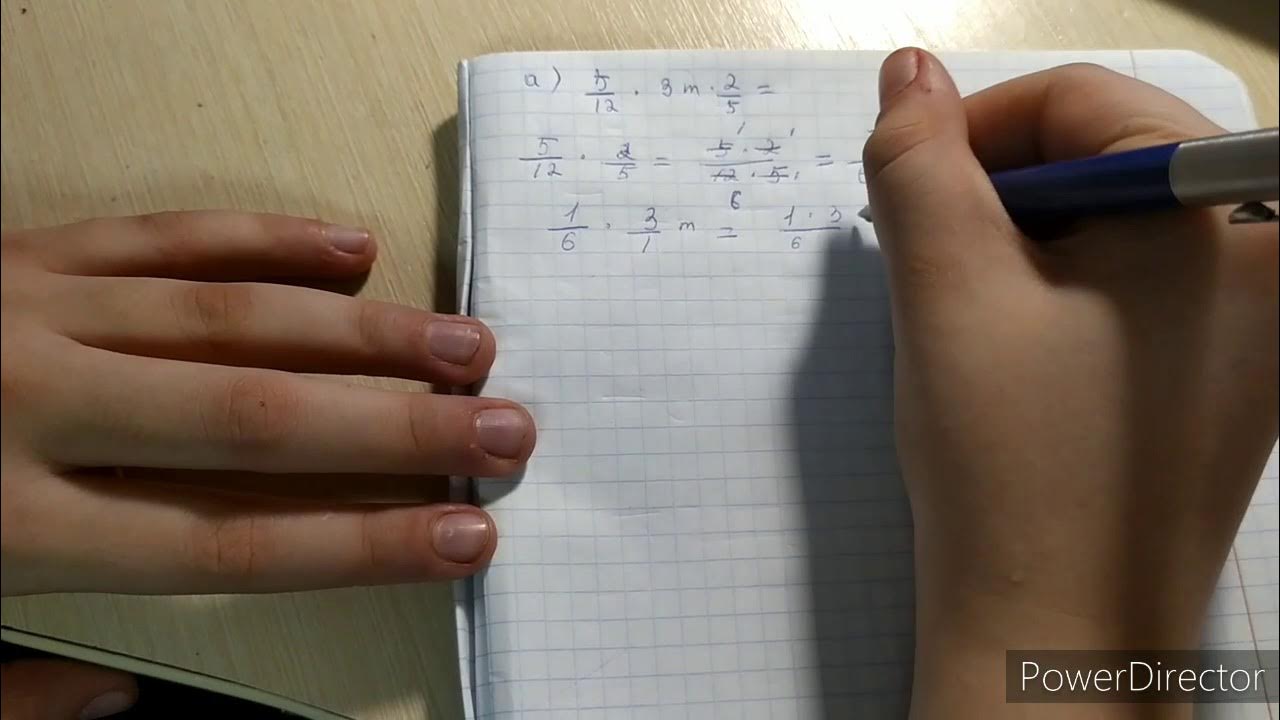 а) 5/12 · 3 m · 2/5 =
5/12 · 2/5 = 5 · 2 / 12 · 5 = 1 1 6 1
1/6 · 3/1 m = 1 · 3 / 6
PowerDirector